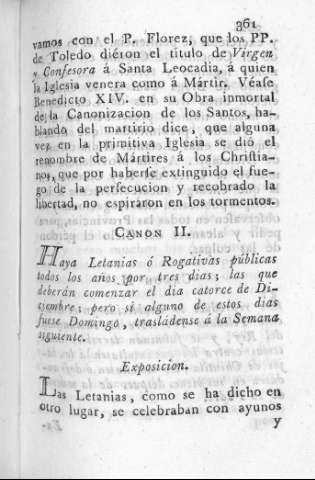 361
vamos con el P. Florez, que los PP.
de Toledo diéron el título de Virgen
y Confesora á Santa Leocadia, á quien
la Iglesia venera como á Mártir. Véase
Benedicto XIV. en su Obra inmortal
de la Canonizacion de los Santos, ha-
blando del martirio dice, que alguna
vez en la primitiva Iglesia se dió el
renombre de Mártires á los Christia-
nos, que por haberse extinguido el fue-
go de la persecucion y recobrado la
libertad, no espiraron en los tormentos.
CANON II.
Haya Letanias ó Rogativas públicas
todos los años por tres dias; las que
deberán comenzar el dia catorce de Di-
ciembre; pero si alguno de estos dias
fuese Domingo, trasládense á la Semana
siguiente.
Exposicion.
Las Letanias, como se ha dicho en
otro lugar, se celebraban con ayunos
y